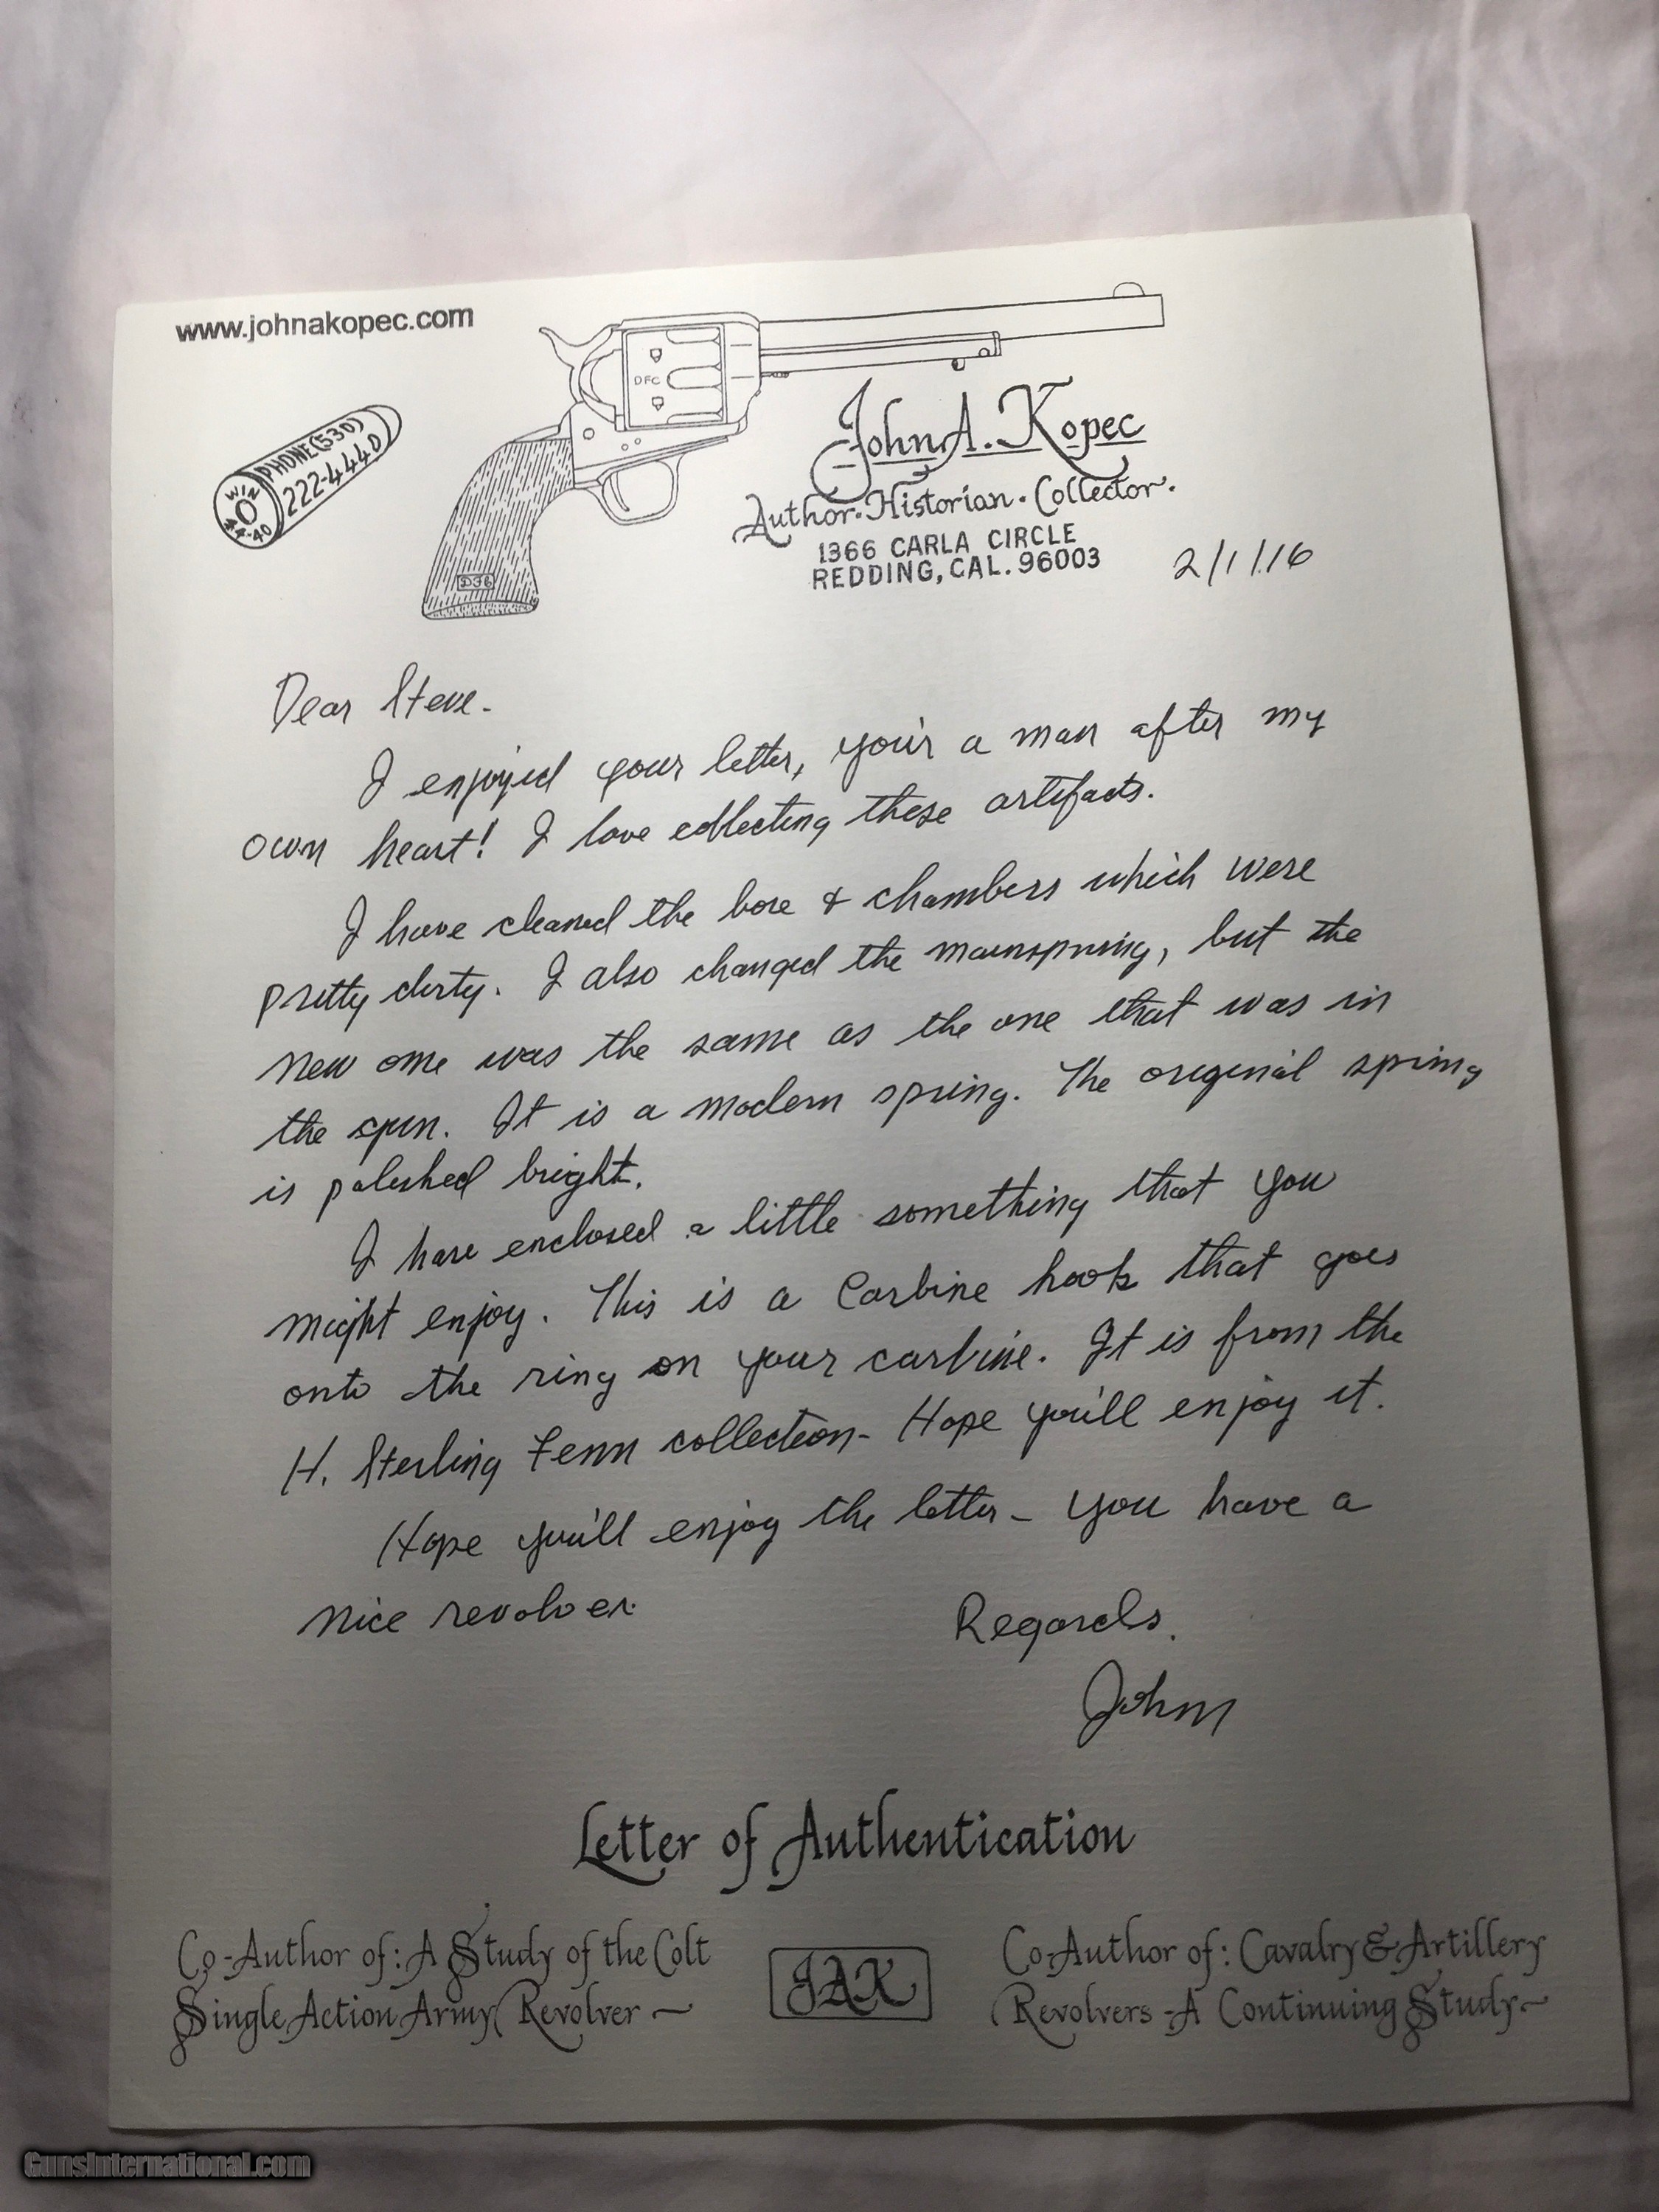 www.johnakopec.com
PHONE (530)
222-4440
WIN
44-40
DFC
DFC
John A. Kopec
Author · Historian · Collector ·
1366 CARLA CIRCLE
REDDING, CAL. 96003
2/1/16
Dear Steve -
I enjoyed your letter, you'r a man after my
own heart! I love collecting these artifacts.
I have cleaned the bore & chambers which were
pretty dirty. I also changed the mainspring, but the
new one was the same as the one that was in
the gun. It is a modern spring. The original spring
is polished bright.
I have enclosed a little something that you
might enjoy. This is a Carbine hook that goes
onto the ring on your carbine. It is from the
H. Sterling Fenn collection - Hope you'll enjoy it.
Hope you'll enjoy the letter - You have a
nice revolver.
Regards.
John
Letter of Authentication
Co-Author of: A Study of the Colt
Single Action Army Revolver ~
JAK
Co-Author of: Cavalry & Artillery
Revolvers - A Continuing Study ~
GunsInternational.com